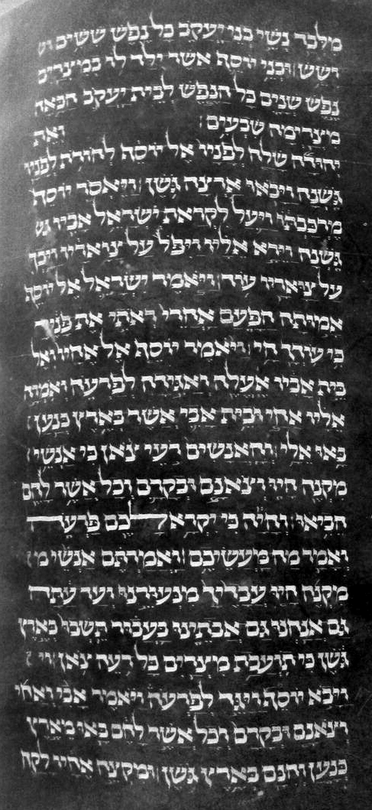 מלבד נשי בני יעקב כל נפש ששים וש
ושש ובני יוסף אשר ילד לו במצרים
נפש שנים כל הנפש לבית יעקב הבאה
מצרימה שבעים ואת
יהודה שלח לפניו אל יוסף להורת לפניו
גשנה ויבאו ארצה גשן ויאסר יוסף
מרכבתו ויעל לקראת ישראל אביו גש
גשנה וירא אליו ויפל על צואריו ויבך
על צואריו עוד ויאמר ישראל אל יוסף
אמותה הפעם אחרי ראתי את פניך
כי עודך חי ויאמר יוסף אל אחיו ואל
בית אביו אעלה ואגידה לפרעה ואמרה
אליו אחי ובית אבי אשר בארץ כנען
באו אלי והאנשים רעי צאן כי אנשי
מקנה היו וצאנם ובקרם וכל אשר להם
הביאו והיה כי יקרא לכם פרעה
ואמר מה מעשיכם ואמרתם אנשי מ
מקנה היו עבדיך מנעורינו ועד עתה
גם אנחנו גם אבתינו בעבור תשבו בארץ
גשן כי תועבת מצרים כל רעה צאן וי
ויבא יוסף ויגד לפרעה ויאמר אבי ואחי
וצאנם ובקרם וכל אשר להם באו מארץ
כנען והנם בארץ גשן ומקצה אחיו לקח